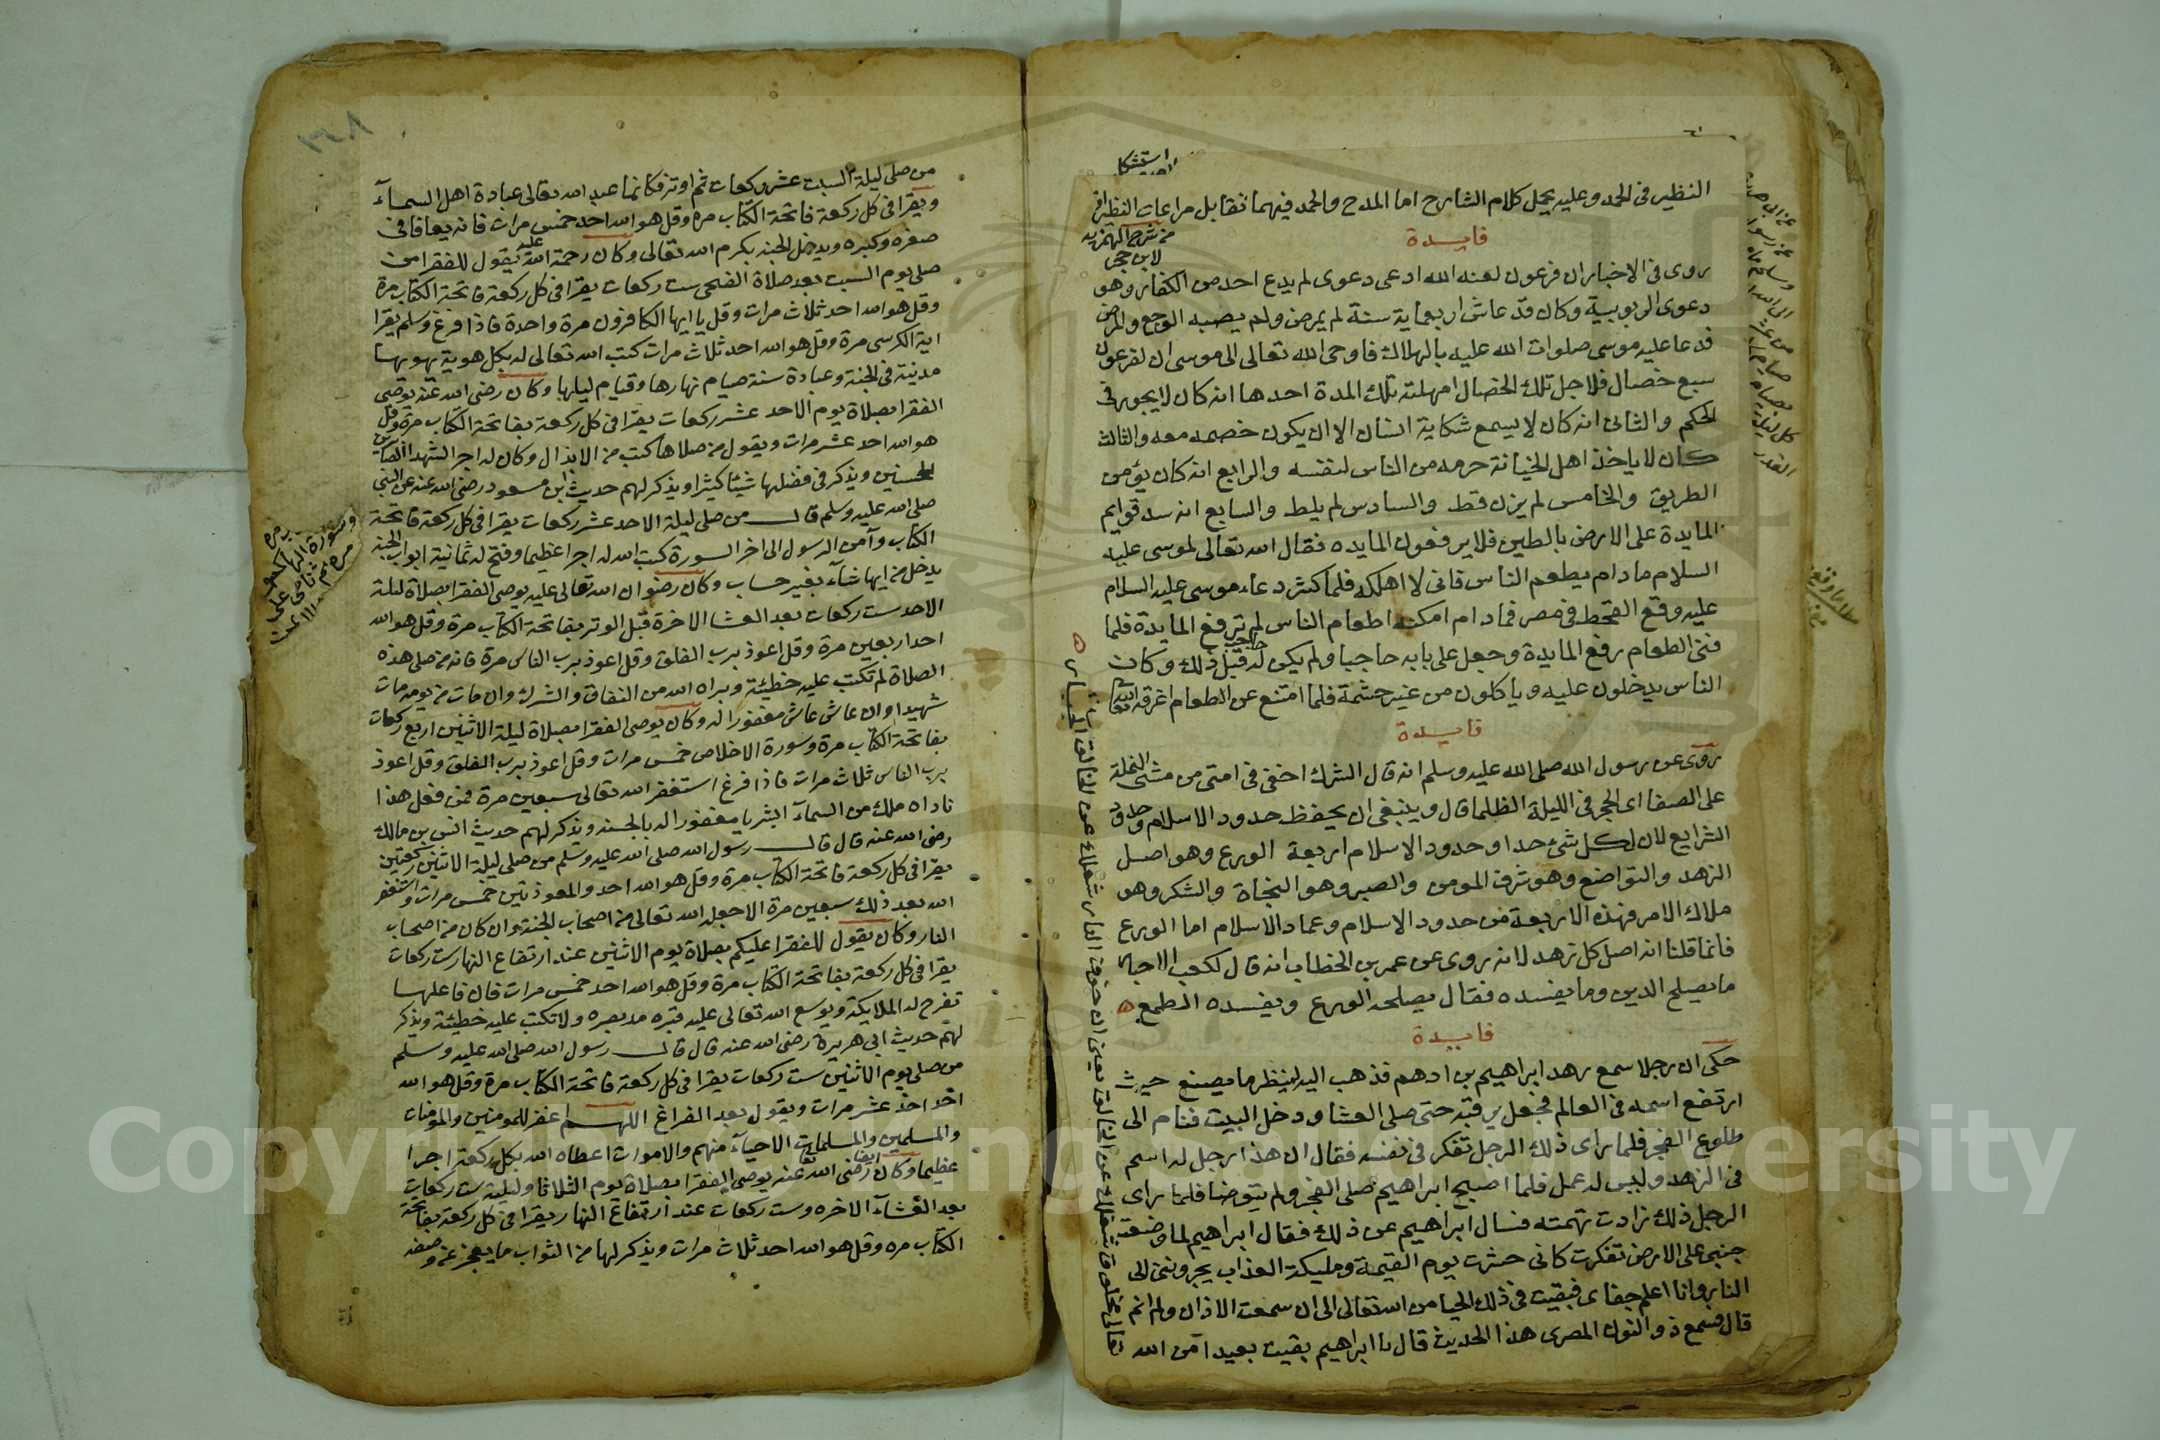 النظير في الحمد وعليه يحمل كلام الشارح اما المدح والحمد فيهما تقابل مراعات النظير
من شرح الهمزيه
لابن حجر
فايدة
روى في الاخبار ان فرعون لعنه الله ادعى دعوى لم يدع احد من الكفار وهو
دعوى الربوبية وكان قد عاش اربعماية سنة لم يمرض ولم يصبه الوجع والمرض
فدعا عليه موسى صلوات الله عليه بالهلاك فاوحى الله تعالى الى موسى ان لفرعون
سبع خصال فلاجل تلك الخصال امهلته تلك المدة احدها انه كان لا يجور في
الحكم والثانى انه كان لا يسمع شكاية انسان الا ان يكون خصمه معه والثالث
كان لا ياخذ اهل الخيانة حرمه من الناس لنفسه والرابع انه كان يؤمن
الطريق والخامس لم يزن قط والسادس لم يلط والسابع انه سد قوايم
المايدة على الارض بالطين فلا يرفعون المايده فقال الله تعالى لموسى عليه
السلام ما دام يطعم الناس فانى لا اهلكه فلما كثر دعاء موسى عليه السلام
عليه وقع القحط في مصر فما دام امكنه اطعام الناس لم ترفع المايدة فلما
فنى الطعام رفع المايدة وجعل على بابه حاجبا ولم يكن له حاجب قبل ذلك وكان
الناس يدخلون عليه وياكلون من غير حشمة فلما امتنع عن الطعام اغرقه الله
فايدة
روى عن رسول الله صلى الله عليه وسلم انه قال الشرك اخفى في امتى من مشى النملة
على الصفا اى الحجر في الليلة الظلما قال وينبغى ان يحفظ حدود الاسلام وحدود
الشرايع لان لكل شئ حدا وحدود الاسلام اربعة الورع وهو اصل
الزهد والتواضع وهو شرف المومن والصبر وهو النجاة والشكر وهو
ملاك الامر فهذه الاربعة من حدود الاسلام وعماد الاسلام اما الورع
فانما قلنا انه اصل كل زهد لانه روى عن عمر بن الخطاب انه قال لكعب الاحبار
ما يصلح الدين وما يفسده فقال يصلحه الورع ويفسده الطمع
فايدة
حكى ان رجلا سمع زهد ابراهيم بن ادهم فذهب اليه لينظر ما يصنع حيث
ارتفع اسمه في العالم فجعل يرقبه حتى صلى العشا ودخل البيت فنام الى
طلوع الفجر فلما راى ذلك الرجل تفكر في نفسه فقال ان هذا رجل له اسم
في الزهد وليس له عمل فلما اصبح ابراهيم صلى الفجر ولم يتوضا فلما راى
الرجل ذلك زادت تهمته فسال ابراهيم عن ذلك فقال ابراهيم لما وضعت
جنبى على الارض تفكرت كانى حشرت يوم القيمة ومليكة العذاب يجروننى الى
النار وانا اعلم جفاى فبقيت في ذلك الحيا من الله تعالى الى ان سمعت الاذان ولم انم
قال فسمع ذو النون المصرى هذا الحديث قال يا ابراهيم بقيت بعيدا من الله
من صلى ليلة السبت عشر ركعات ثم اوتر فكانما عبد الله تعالى عبادة اهل السمآء
ويقرا في كل ركعة فاتحة الكتاب مره وقل هو الله احد خمس مرات فانه يعافا في
صغره وكبره ويدخل الجنه بكرم الله تعالى وكان رحمة الله عليه يقول للفقرا من
صلى يوم السبت بعد صلاة الضحى ست ركعات يقرا في كل ركعة فاتحة الكتاب مرة
وقل هو الله احد ثلاث مرات وقل يا ايها الكافرون مرة واحدة فاذا فرغ وسلم يقرا
اية الكرسى مرة وقل هو الله احد ثلاث مرات كتب الله تعالى له بكل
مدينة في الجنة وعبادة سنة صيام نهارها وقيام ليلها وكان رضى الله عنه يوصى
الفقرا بصلاة يوم الاحد عشر ركعات يقرا في كل ركعة بفاتحة الكتاب مرة وقل
هو الله احد عشر مرات ويقول من صلاها كتب من الابدال وكان له اجر الشهدا الصابرين
المحسنين ويذكر في فضلها شيئا كثيرا ويذكر لهم حديث ابن مسعود رضى الله عنه عن النبى
صلى الله عليه وسلم قال من صلى ليلة الاحد عشر ركعات يقرا في كل ركعة فاتحة
الكتاب وآمن الرسول الى اخر السورة كتب الله له اجرا عظيما وفتح له ثمانية ابواب الجنة
يدخل من ايها شآء بغير حساب وكان رضوان الله تعالى عليه يوصى الفقرا بصلاة ليلة
الاحد ست ركعات بعد العشا الاخرة قبل الوتر بفاتحة الكتاب مرة وقل هو الله
احد اربعين مرة وقل اعوذ برب الفلق وقل اعوذ برب الناس مرة فانه من صلى هذه
الصلاة لم تكتب عليه خطيئة وبراه الله من النفاق والشرك وان مات من يومه مات
شهيدا وان عاش عاش مغفورا له وكان يوصى الفقرا بصلاة ليلة الاثنين اربع ركعات
بفاتحة الكتاب مرة وسورة الاخلاص خمس مرات وقل اعوذ برب الفلق وقل اعوذ
برب الناس ثلاث مرات فاذا فرغ استغفر الله تعالى سبعين مرة فمن فعل هذا
ناداه ملك من السمآء ابشر يا مغفورا له بالحسنه ويذكر لهم حديث انس بن مالك
رضى الله عنه قال قال رسول الله صلى الله عليه وسلم من صلى ليلة الاثنين ركعتين
يقرا في كل ركعة فاتحة الكتاب مرة وقل هو الله احد والمعوذتين خمس مرات واستغفر
الله بعد ذلك سبعين مرة الا جعله الله تعالى من اصحاب الجنة وان كان من اصحاب
النار وكان يقول للفقرا عليكم بصلاة يوم الاثنين عند ارتفاع النهار ست ركعات
يقرا في كل ركعة بفاتحة الكتاب مرة وقل هو الله احد خمس مرات فان فاعلها
تفرح له الملايكة ويوسع الله تعالى عليه قبره مد بصره ولا تكتب عليه خطيئة ويذكر
لهم حديث ابى هريرة رضى الله عنه قال قال رسول الله صلى الله عليه وسلم
من صلى يوم الاثنين ست ركعات يقرا في كل ركعة فاتحة الكتاب مرة وقل هو الله
احد احد عشر مرات ويقول بعد الفراغ اللهم اغفر للمومنين والمومنات
والمسلمين والمسلمات الاحيآء منهم والاموات اعطاه الله بكل ركعة اجرا
عظيما وكان ايضا رضى الله عنه يوصى الفقرا بصلاة يوم الثلاثا وليلته ست ركعات
بعد العشآء الاخره وست ركعات عند ارتفاع النهار يقرا في كل ركعة بفاتحة
الكتاب مره وقل هو الله احد ثلاث مرات ويذكر لها من الثواب ما يعجز عن وصفه
Copyright © King Saud University